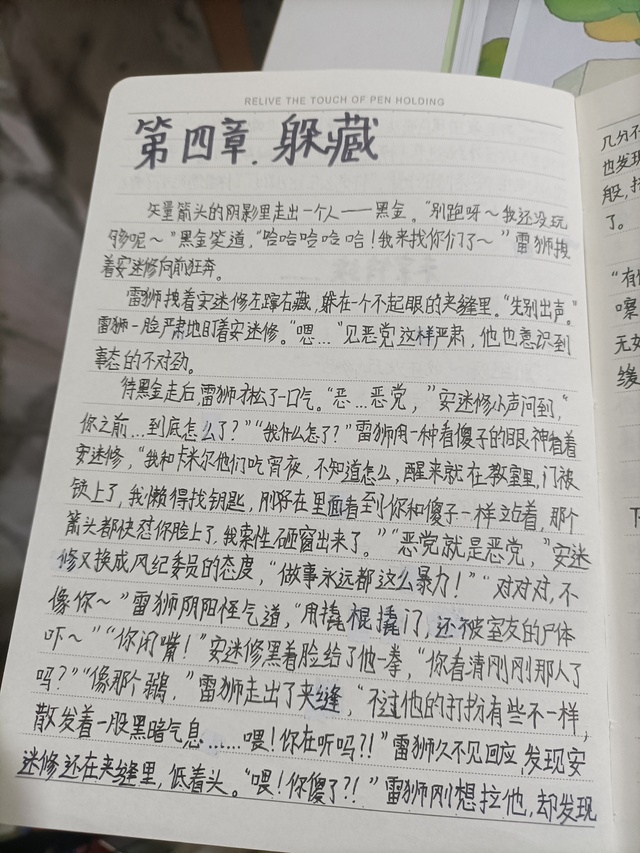 RELIVE THE TOUCH OF PEN HOLDING
第四章.躲藏
矢量箭头的阴影里走出一个人——黑金。“别跑呀~我还没玩
够呢~”黑金笑道,“哈哈哈哈哈!我来找你们了~”雷狮拽
着安迷修向前狂奔。
雷狮拽着安迷修左蹿右藏,躲在一个不起眼的夹缝里。“先别出声。”
雷狮一脸严肃地盯着安迷修。“嗯…”见恶党这样严肃,他也意识到
事态的不对劲。
待黑金走后,雷狮才松了一口气。“恶…恶党,”安迷修小声问到,“
你之前…到底怎么了?”“我什么怎了?”雷狮用一种看傻子的眼神看着
安迷修,“我和卡米尔他们吃宵夜,不知道怎么,醒来就在教室里,门被
锁上了,我懒得找钥匙,刚好在里面看到你和傻子一样站着,那个
箭头都快怼你脸上了,我索性砸窗出来了。”“恶党就是恶党,”安迷
修又换成风纪委员的态度,“做事永远都这么暴力!”“对对对,不
像你~”雷狮阴阳怪气道,“用撬棍撬门,还被室友的尸体
吓~”“你闭嘴!”安迷修黑着脸给了他一拳,“你看清刚刚那人了
吗?”“像那个鶸,”雷狮走出了夹缝,“不过他的打扮有些不一样,
散发着一股黑暗气息……喂!你在听吗?!”雷狮久不见回应,发现安
迷修还在夹缝里,低着头。“喂!你傻了?!”雷狮刚想拉他,却发现
几分不
也发现
般,
了。
“有
嚓
无如
缘
下